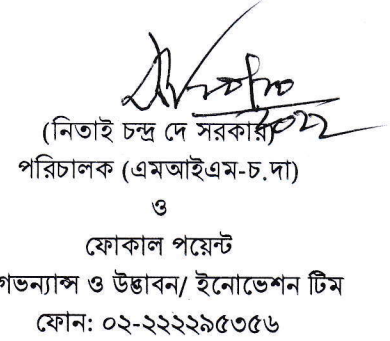 (নিতাই চন্দ্র দে সরকার)
পরিচালক (এমআইএম-চ.দা)
ও
ফোকাল পয়েন্ট
গভন্যান্স ও উদ্ভাবন/ ইনোভেশন টিম
ফোন: ০২-২২২২৯৫৩৫৬